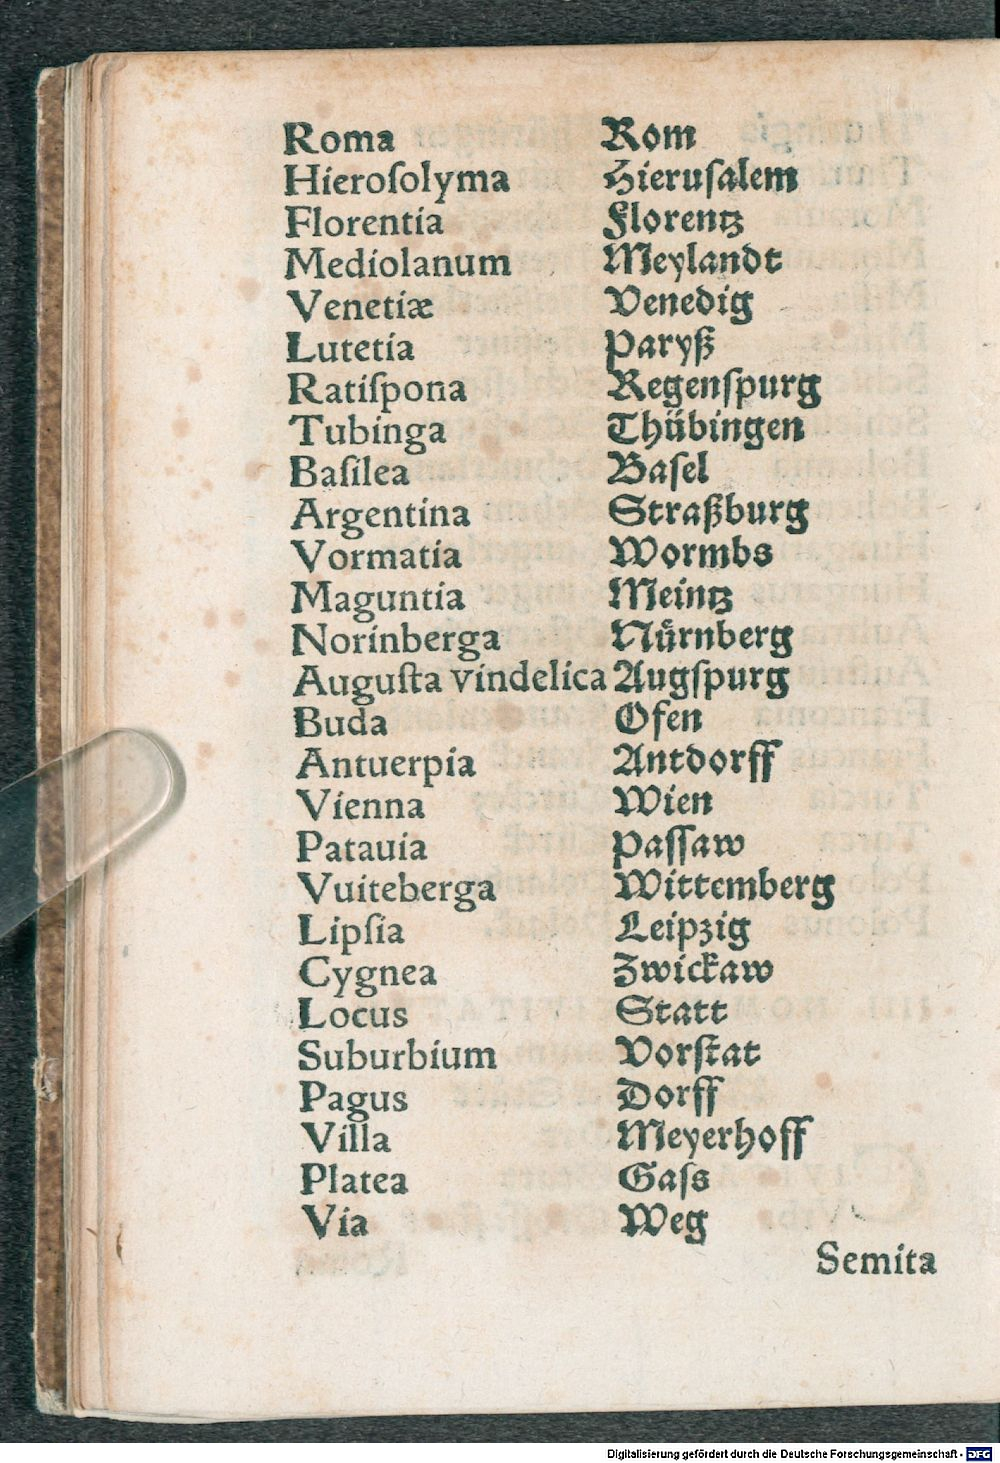 Roma Rom
Hieroſolyma Hieruſalem
Florentia Florentz
Mediolanum Meylandt
Venetiæ Venedig
Lutetia Paryß
Ratiſpona Regenſpurg
Tubinga Thübingen
Baſilea Baſel
Argentina Straßburg
Vormatia Wormbs
Maguntia Meintz
Norinberga Nuͤrnberg
Auguſta vindelica Augſpurg
Buda Ofen
Antuerpia Antdorff
Vienna Wien
Patauia Paſſaw
Vuiteberga Wittemberg
Lipſia Leipzig
Cygnea Zwickaw
Locus Statt
Suburbium Vorſtat
Pagus Dorff
Villa Meyerhoff
Platea Gaſs
Via Weg
Semita
Digitalisierung gefördert durch die Deutsche Forschungsgemeinschaft - DFG